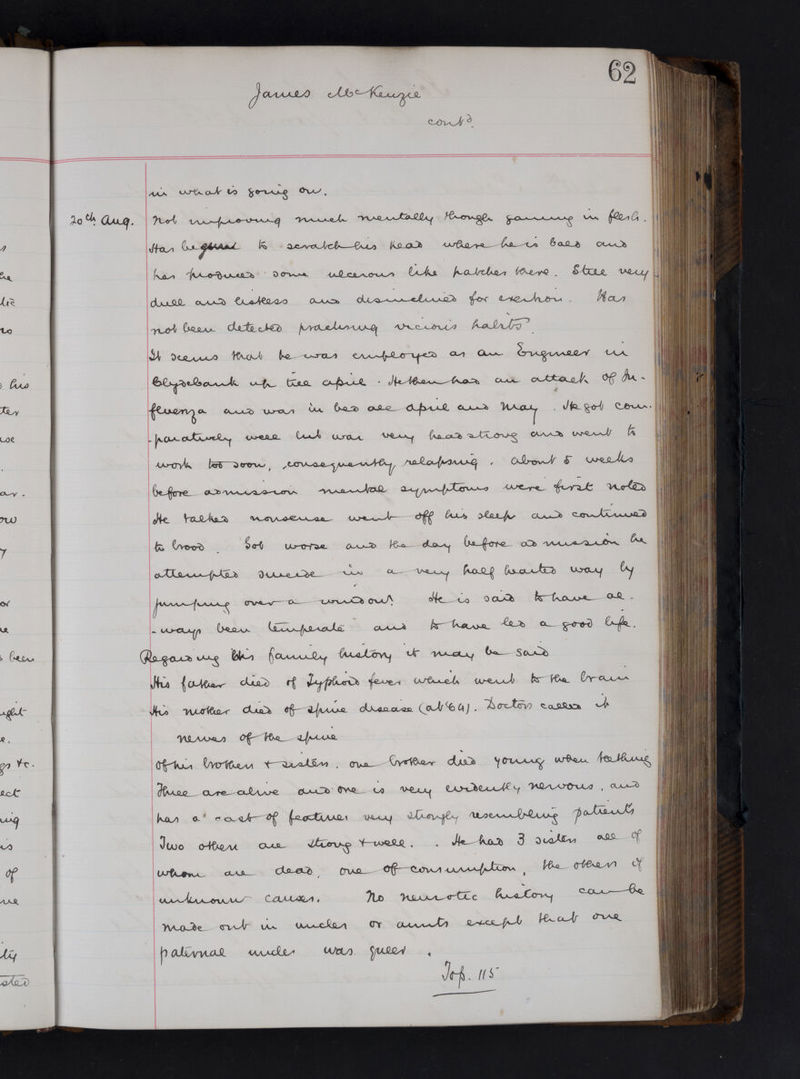 62
James McKenzie
contd.
in what is going on.
20th Aug. Not improving much mentally though gaining in flesh.
Has begun to scratch his head where he is bald and
has produced some ulcerous like patches there. Still very
dull and listless and disinclined for exertion. Has
not been detected practising vicious habits.
It seems that he was employed as an Engineer in
Clydebank up till april. He then had an attack of In-
fluenza and was in bed all april and May. He got com-
-paratively well but was very headstrong and went to
work too soon, consequently relapsing. about 5 weeks
before admission mental symptoms were first noted
He talked nonsense went off his sleep and continued
to brood. Got worse and the day before admission he
attempted suicide in a very half hearted way by
jumping over a window. He is said to have al-
-ways been temperate and to have led a good life.
Regarding his family history it may be said
His father died of Typhoid fever which went to the brain
His mother died of spine disease (at 64). Doctors called it
nerves of the spine
Of his brothers + sisters. one brother died young when teething
Three are alive and one is very evidently nervous, and
has a cast of features very strongly resembling patients
Two others are strong + well. He had 3 sisters all of
whom are dead, one of consumption, the others of
unknown causes. No neurotic history can be
made out in uncles or aunts except that one
paternal uncle was queer.
To p. 115